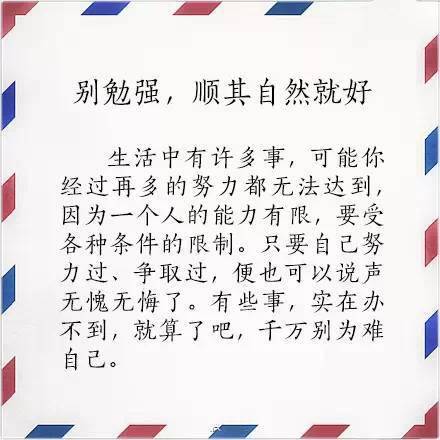 别勉强，顺其自然就好
生活中有许多事，可能你
经过再多的努力都无法达到，
因为一个人的能力有限，要受
各种条件的限制。只要自己努
力过、争取过，便也可以说声
无愧无悔了。有些事，实在办
不到，就算了吧，千万别为难
自己。